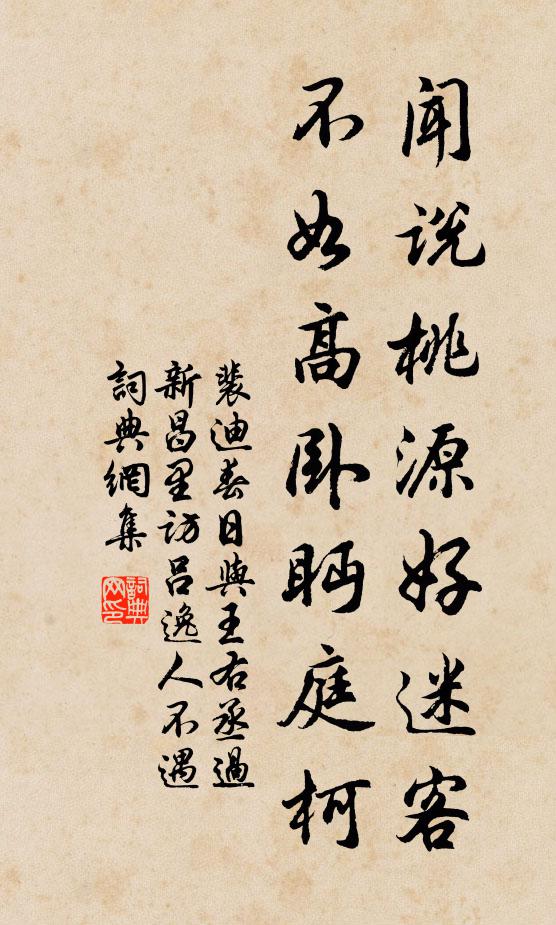 闻说桃源好迷客
不如高卧眄庭柯
裴迪春日與王右丞過
新昌里访吕逸人不遇
詞典網集
詞典
网印